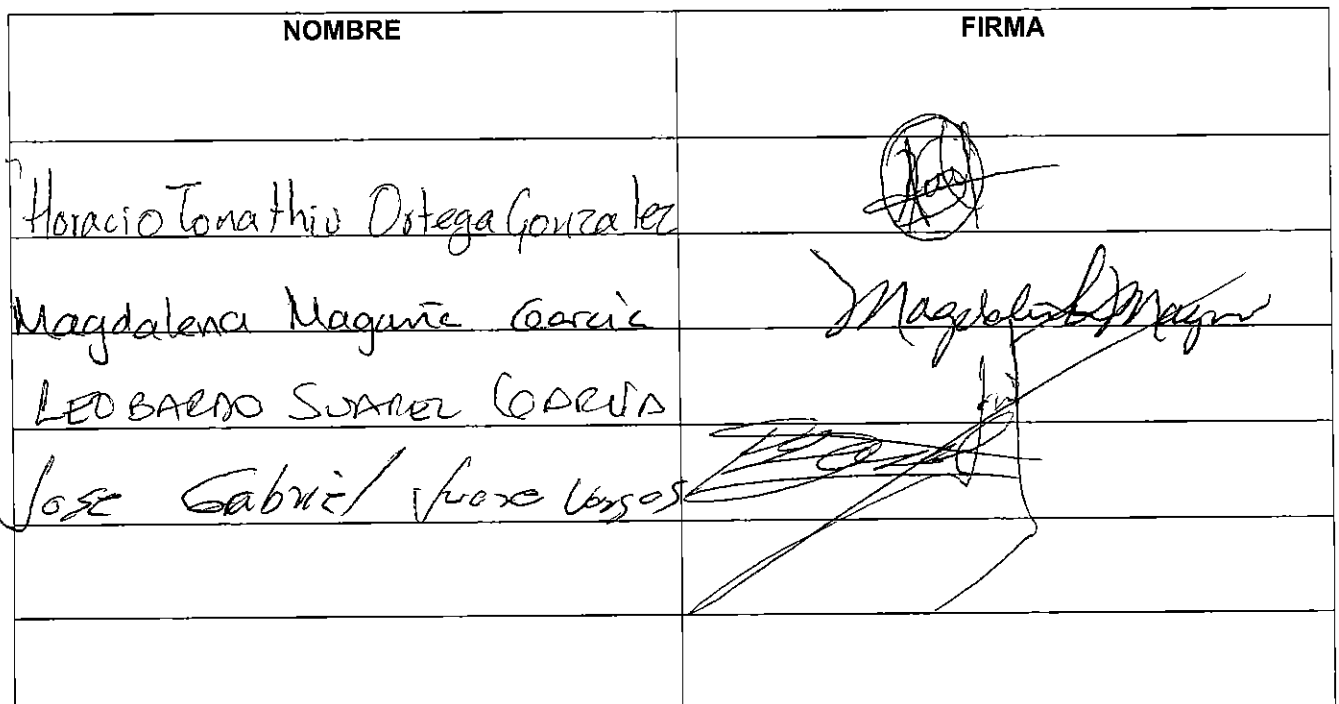 NOMBRE FIRMA
Horacio Tonathiu Ortega Gonzalez
Magdalena Magaña Garcia Magdalena Magaña
LEOBARDO SUAREZ GARCIA
Jose Gabriel Vargas